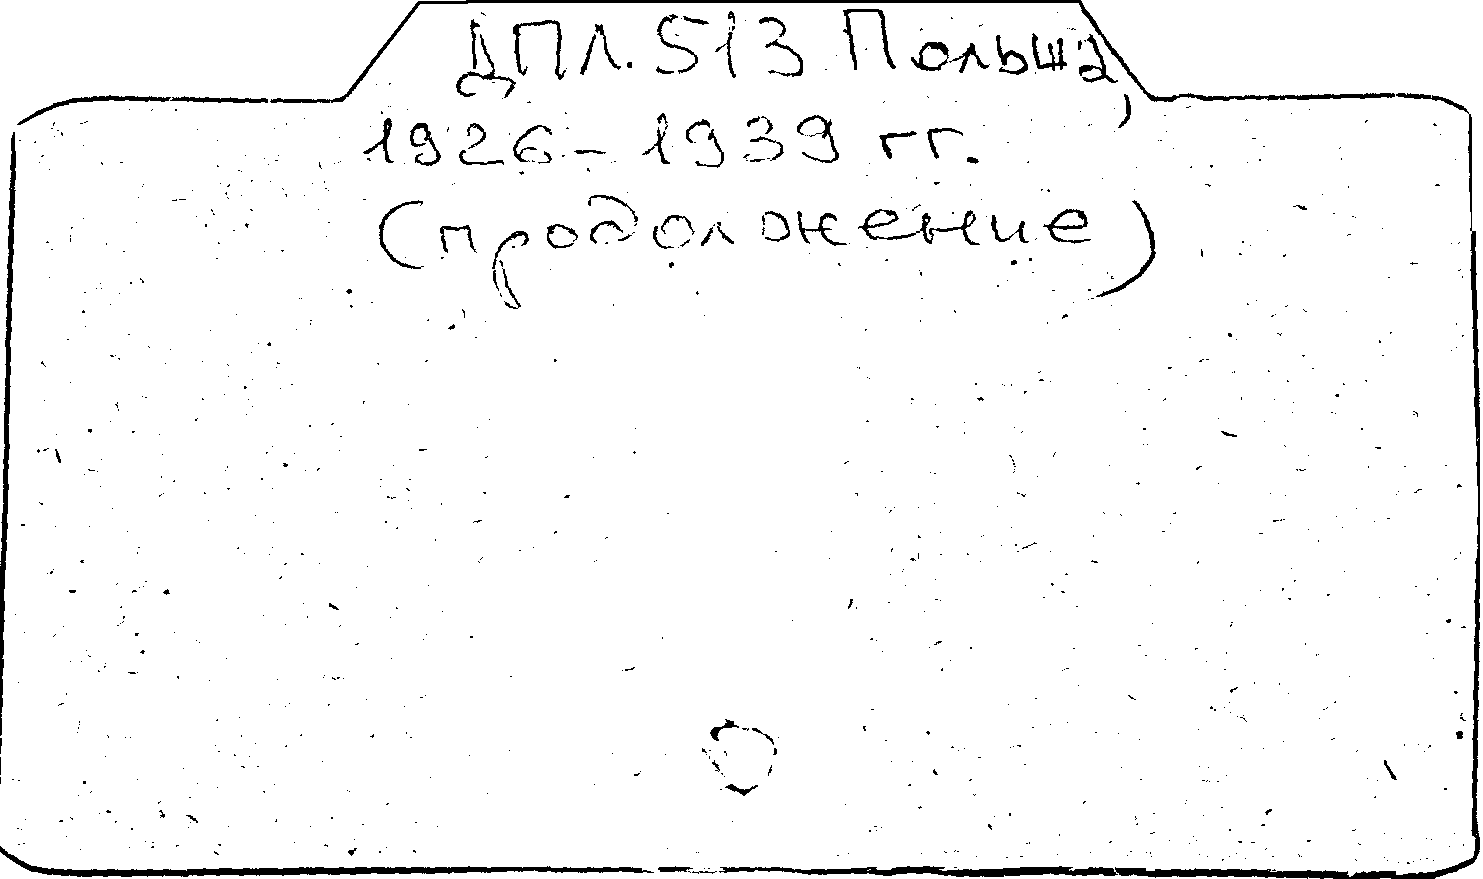 ДПЛ.513 Польша,
1926-1939 гг.
(продолжение)